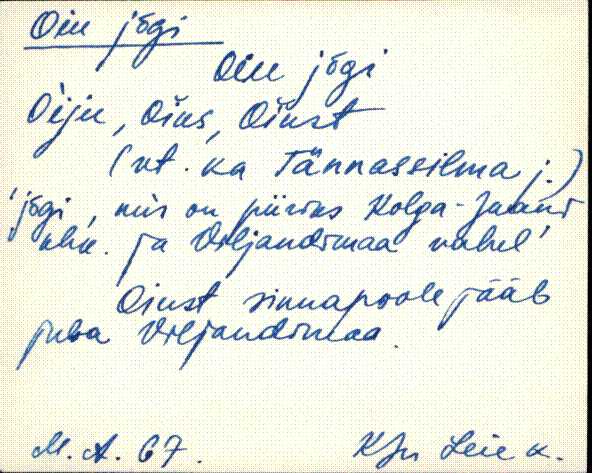 Oiu jõgi
Oiu jõgi
Òiju, Oĭus, Oĭust
(vt. ka Tännassilma j.)
'jõgi, mis on piiriks Kolga-Jaani
khk. ja Viljandimaa vahel'
Oiust sinnapoole jääb
juba Viljandimaa.
M. A. 67.
KJn Leie k.